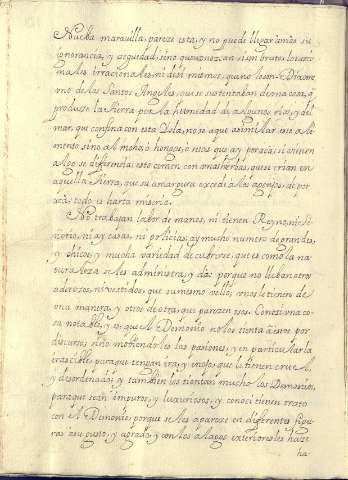 Nueba maravilla parece esta, y no puede llegar a mas su
ignorancia, y ceguedad, sino que aun son brutos, los ani
males irracionales, ni distinamos, que no lo son. Dixeron
me los Santos Angeles, que se sustentaban de una cosa, q.
produce la tierra por la humedad de algunos rios, y del
mar, que confina con esta Isla, no se aque asimilar este ali
mento, sino al moho, ó hongos, o
algo se diferencia: este cuecen con unas yerbas, que se crian en
aquella tierra, que su amargura excede a los
todo es harta miseria.
No trabajan labor de manos, ni tienen Reyno, ni Se
ñorio, ni ay casas, ni policias, ay mucho numero de grandes,
y chicos, y mucha variedad de cubrirse, que es como la na
turaleza se les administra, y dá: porque no llevan otros
aderezos, ni vestidos, que su mesmo vello, unos le tienen de
una manera, y otros de otra, que parecen osos. Conoci una co
sa notable, y es que el Demonio no los tienta a estos por
discursos, sino mobiendoles las pasiones, y en particular la
irascible, para que tengan ira, y enojo, que lo tienen cruel
y desordenado; y tambien los tientan mucho los Demonios,
para que sean impuros, y luxuriosos, y conoci tienen trato
con el Demonio, porque se les aparece en diferentes figu
ras a su gusto, y agrado, y con los alagos exteriores les haze
ha